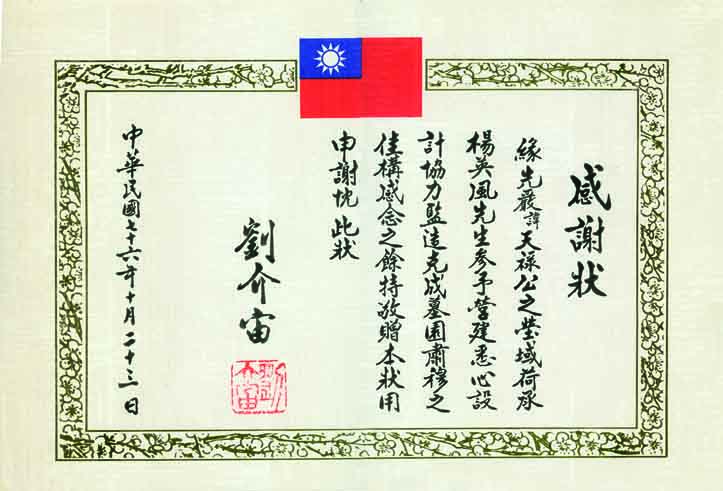 感謝狀
緣先嚴諱天祿公之塋域荷承
楊英風先生參予營建悉心設
計協力監造克成墓園肅穆之
佳構感念之餘特敬贈本狀用
申謝忱此狀
劉介宙
劉介宙
中華民國七十六年十月二十三日